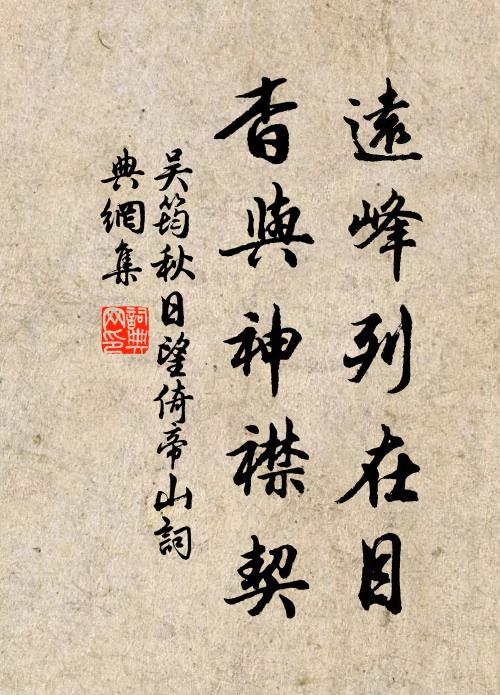 遠峰列在目
杳與神襟契
吴筠秋日望倚帝山詞
典網集
詞典
网印